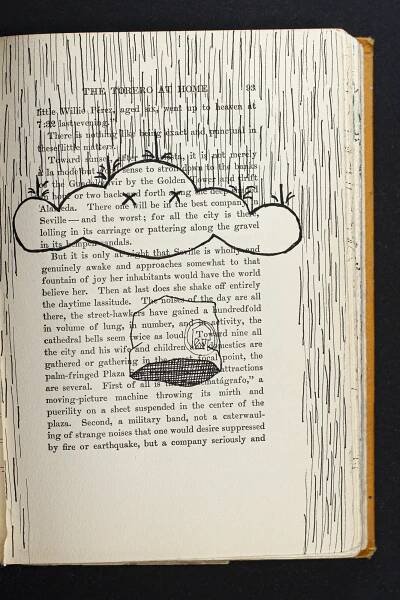 THE TORERO AT HOME 93
little Willie Pérez, aged six, went up to heaven at
7:22 last evening."
There is nothing like being exact and punctual in
these little matters.
Toward sunset, after it is not merely
à la mode but sense to stroll down to the banks
of the Guadalquivir by the Golden Tower and drift
hour or two back and forth along the
Alameda. There one will be in the best company in
Seville—and the worst; for all the city is there,
lolling in its carriage or pattering along the gravel
in its hempen sandals.
But it is only at night that Seville is wholly and
genuinely awake and approaches somewhat to that
fountain of joy her inhabitants would have the world
believe her. Then at last does she shake off entirely
the daytime lassitude. The noises of the day are all
there, the street-hawkers have gained a hundredfold
in volume of lung, in number, and in activity, the
cathedral bells seem twice as loud. Toward nine all
the city and his wife and children and domestics are
gathered or gathering in the focal point, the
palm-fringed Plaza attractions
are several. First of all is the matágrafo," a
moving-picture machine throwing its mirth and
puerility on a sheet suspended in the center of the
plaza. Second, a military band, not a caterwaul-
ing of strange noises that one would desire suppressed
by fire or earthquake, but a company seriously and